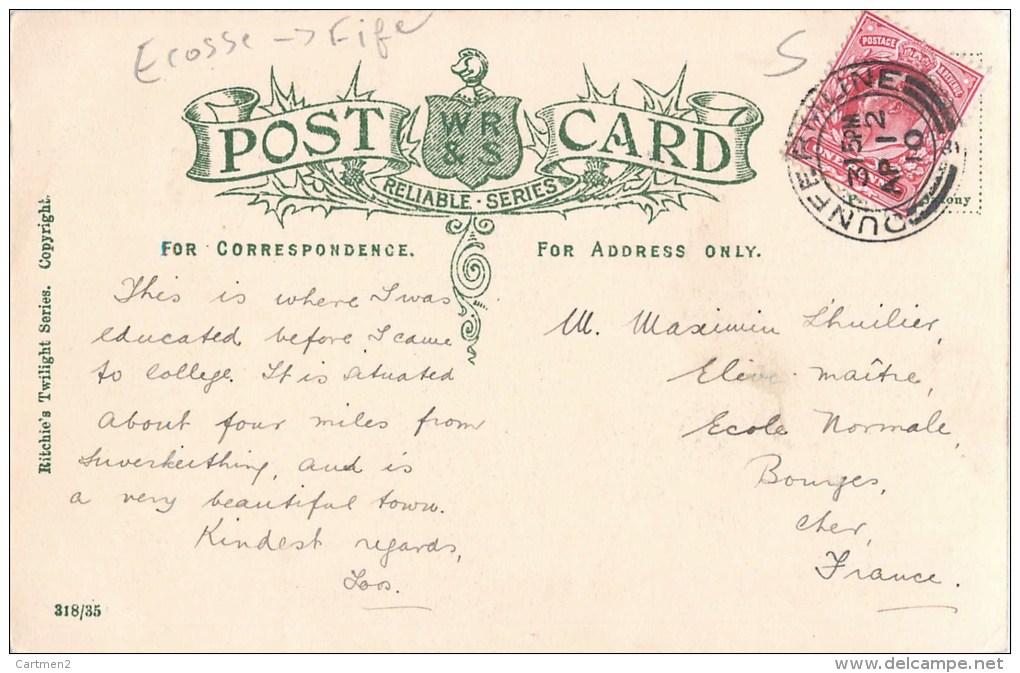 Ecosse -> Fife
S
POST CARD
WR
& S
RELIABLE · SERIES
POSTAGE
DUNFERMLINE
3 15PM
AP 12
10
FOR CORRESPONDENCE.
FOR ADDRESS ONLY.
Ritchie's Twilight Series. Copyright.
This is where I was
educated before I came
to college. It is situated
about four miles from
Inverkeithing, and is
a very beautiful town.
Kindest regards,
M. Maximin Lhuilier,
Elève maître,
Ecole Normale,
Bourges,
Cher,
France.
318/35
Cartmen2
www.delcampe.net